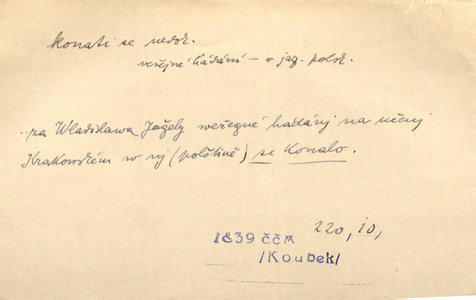 konati se nedok.
veřejné hádání – v jaz. polsk.
..za Wladislawa Jagely weřegné hádánj na učenj
Krakowském w nj (polštině) se konalo.
1839 ČČM 220, 10,
/Koubek/